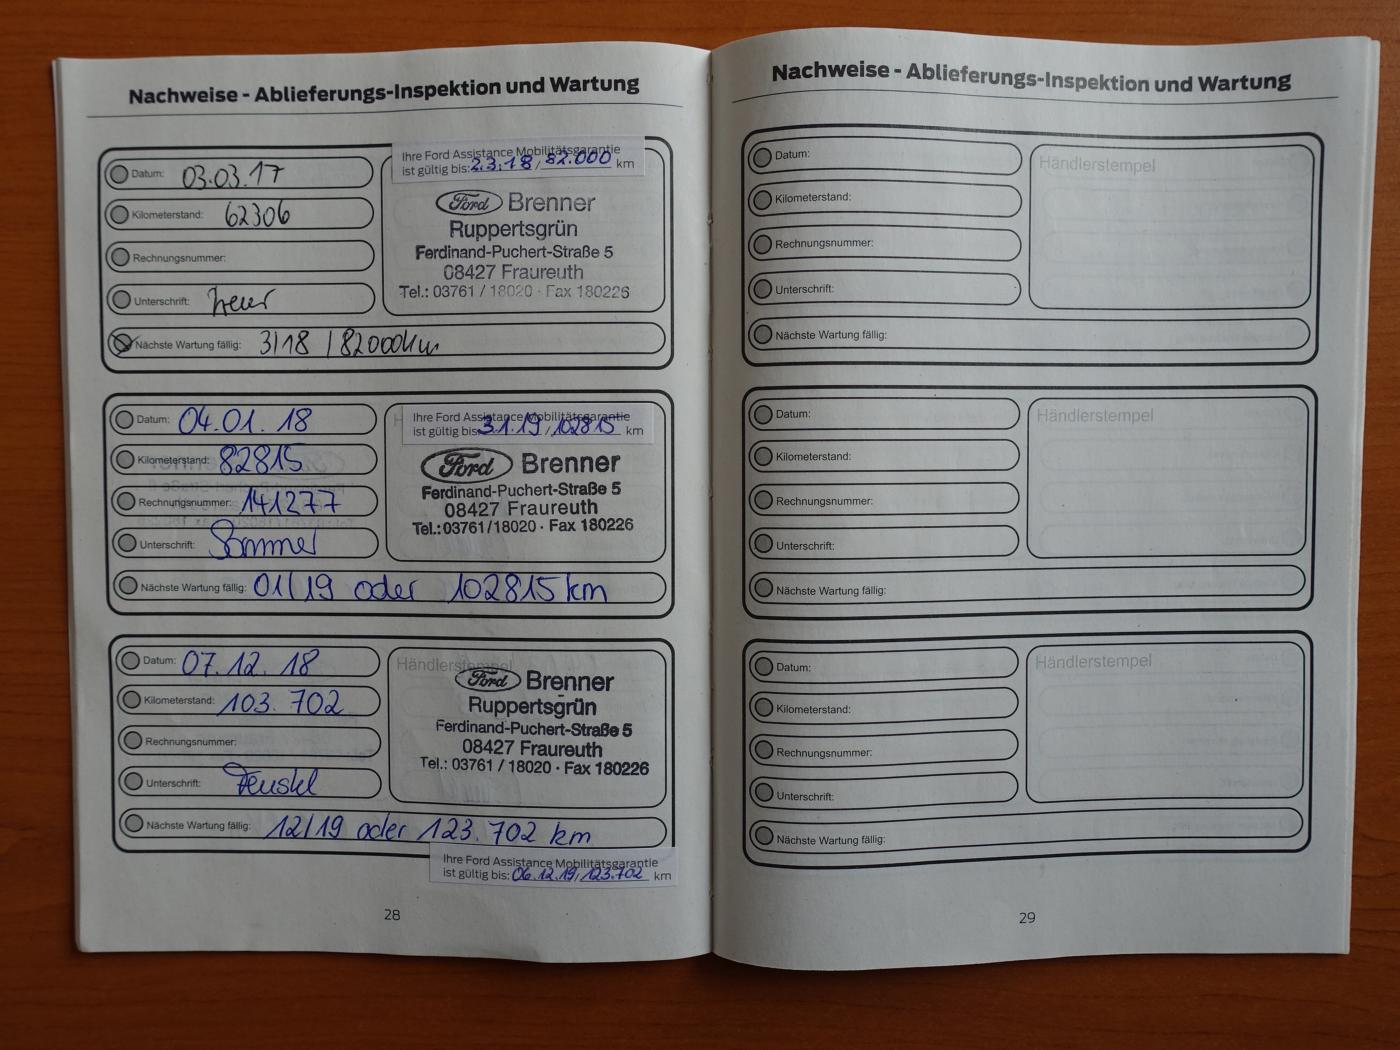 Nachweise - Ablieferungs-Inspektion und Wartung
Datum: 03.03.17
Kilometerstand: 62306
Rechnungsnummer:
Unterschrift:
Nächste Wartung fällig: 3/18 / 82000km
Ihre Ford Assistance Mobilitätsgarantie
ist gültig bis: 2.3.18 / 82.000 km
Ford Brenner
Ruppertsgrün
Ferdinand-Puchert-Straße 5
08427 Fraureuth
Tel.: 03761 / 18020 · Fax 180226
Datum: 04.01.18
Kilometerstand: 82815
Rechnungsnummer: 141277
Unterschrift: Sommer
Nächste Wartung fällig: 01/19 oder 102815 km
Ihre Ford Assistance Mobilitätsgarantie
ist gültig bis: 3.1.19 / 102815 km
Ford Brenner
Ferdinand-Puchert-Straße 5
08427 Fraureuth
Tel.: 03761/18020 · Fax 180226
Datum: 07.12.18
Kilometerstand: 103.702
Rechnungsnummer:
Unterschrift:
Nächste Wartung fällig: 12/19 oder 123.702 km
Händlerstempel
Ford Brenner
Ruppertsgrün
Ferdinand-Puchert-Straße 5
08427 Fraureuth
Tel.: 03761 / 18020 · Fax 180226
Ihre Ford Assistance Mobilitätsgarantie
ist gültig bis: 06.12.19 / 123.702 km
28
Nachweise - Ablieferungs-Inspektion und Wartung
Datum:
Kilometerstand:
Rechnungsnummer:
Unterschrift:
Nächste Wartung fällig:
Händlerstempel
Datum:
Kilometerstand:
Rechnungsnummer:
Unterschrift:
Nächste Wartung fällig:
Händlerstempel
Datum:
Kilometerstand:
Rechnungsnummer:
Unterschrift:
Nächste Wartung fällig:
Händlerstempel
29